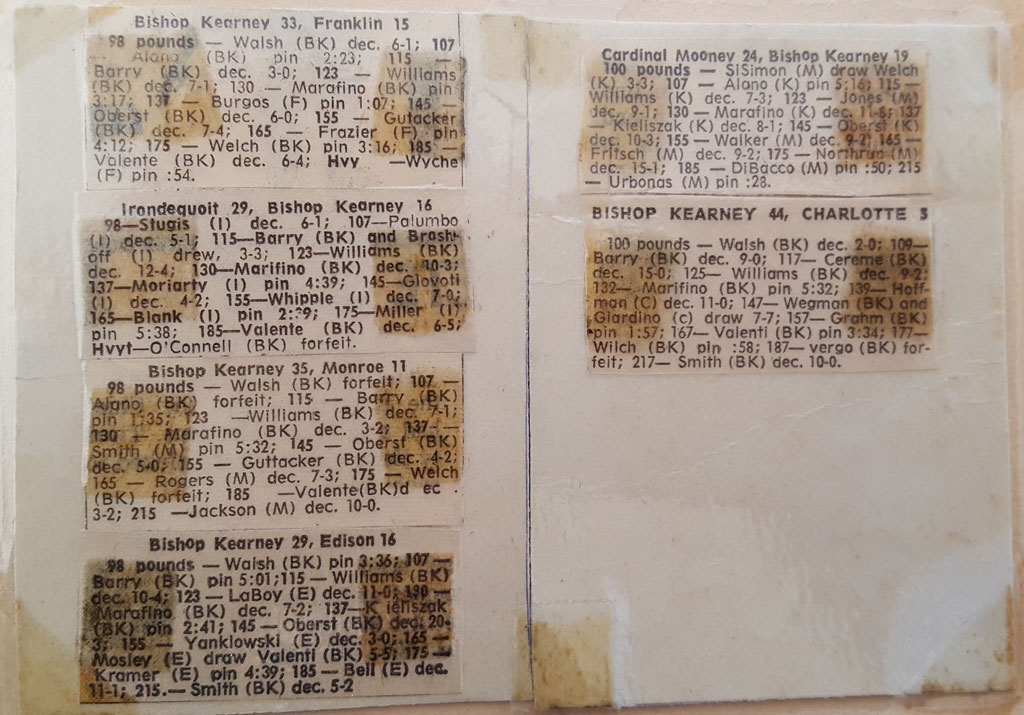 Bishop Kearney 33, Franklin 15
98 pounds — Walsh (BK) dec. 6-1; 107
— Alano (BK) pin 2:23; 115 —
Barry (BK) dec. 3-0; 123 — Williams
(BK) dec. 7-1; 130 — Marafino (BK) pin
3:17; 137 — Burgos (F) pin 1:07; 145 —
Oberst (BK) dec. 6-0; 155 — Gutacker
(BK) dec. 7-4; 165 — Frazier (F) pin
4:12; 175 — Welch (BK) pin 3:16; 185 —
Valente (BK) dec. 6-4; Hvy —Wyche
(F) pin :54.
Irondequoit 29, Bishop Kearney 16
98—Stugis (I) dec. 6-1; 107—Palumbo
(I) dec. 5-1; 115—Barry (BK) and Brash-
off (I) drew, 3-3; 123—Williams (BK)
dec. 12-4; 130—Marifino (BK) dec. 10-3;
137—Moriarty (I) pin 4:39; 145—Glovoti
(I) dec. 4-2; 155—Whipple (I) dec. 7-0;
165—Blank (I) pin 175—Miller (I)
pin 5:38; 185—Valente (BK) dec. 6-5;
Hvyt—O'Connell (BK) forfeit.
Bishop Kearney 35, Monroe 11
98 pounds — Walsh (BK) forfeit; 107 —
Alano (BK) forfeit; 115 — Barry (BK)
pin 1:35; 123 —Williams (BK) dec. 7-1;
130 — Marafino (BK) dec. 3-2; 137—
Smith (M) pin 5:32; 145 — Oberst (BK)
dec. 5-0; 155 — Guttacker (BK) dec. 4-2;
165 — Rogers (M) dec. 7-3; 175 — Welch
(BK) forfeit; 185 —Valente(BK)d ec .
3-2; 215 —Jackson (M) dec. 10-0.
Bishop Kearney 29, Edison 16
98 pounds — Walsh (BK) pin 3:36; 107 —
Barry (BK) pin 5:01;115 — Williams (BK)
dec. 10-4; 123 — LaBoy (E) dec. 11-0; 130 —
Marafino (BK) dec. 7-2; 137—K ieliszak
(BK) pin 2:41; 145 — Oberst (BK) dec. 20-
3; 155 — Yanklowski (E) dec. 3-0; 165 —
Mosley (E) draw Valenti (BK) 5-5; 175 —
Kramer (E) pin 4:39; 185 — Bell (E) dec.
11-1; 215.— Smith (BK) dec. 5-2
Cardinal Mooney 24, Bishop Kearney 19
100 pounds — SiSimon (M) draw Welch
(K) 3-3; 107 — Alano (K) pin 5:16; 115 —
Williams (K) dec. 7-3; 123 — Jones (M)
dec. 9-1; 130 — Marafino (K) dec. 11-8; 137
— Kieliszak (K) dec. 8-1; 145 — Oberst (K)
dec. 10-3; 155 — Walker (M) dec. 9-2; 165 —
Fritsch (M) dec. 9-2; 175 — Northrup (M)
dec. 15-1; 185 — DiBacco (M) pin :50; 215
— Urbonas (M) pin :28.
BISHOP KEARNEY 44, CHARLOTTE 5
100 pounds — Walsh (BK) dec. 2-0; 109—
Barry (BK) dec. 9-0; 117— Cereme (BK)
dec. 15-0; 125— Williams (BK) dec. 9-2;
132— Marifino (BK) pin 5:32; 139— Hoff-
man (C) dec. 11-0; 147— Wegman (BK) and
Giardino (c) draw 7-7; 157— Grahm (BK)
pin 1:57; 167— Valenti (BK) pin 3:34; 177—
Wilch (BK) pin :58; 187— vergo (BK) for-
feit; 217— Smith (BK) dec. 10-0.